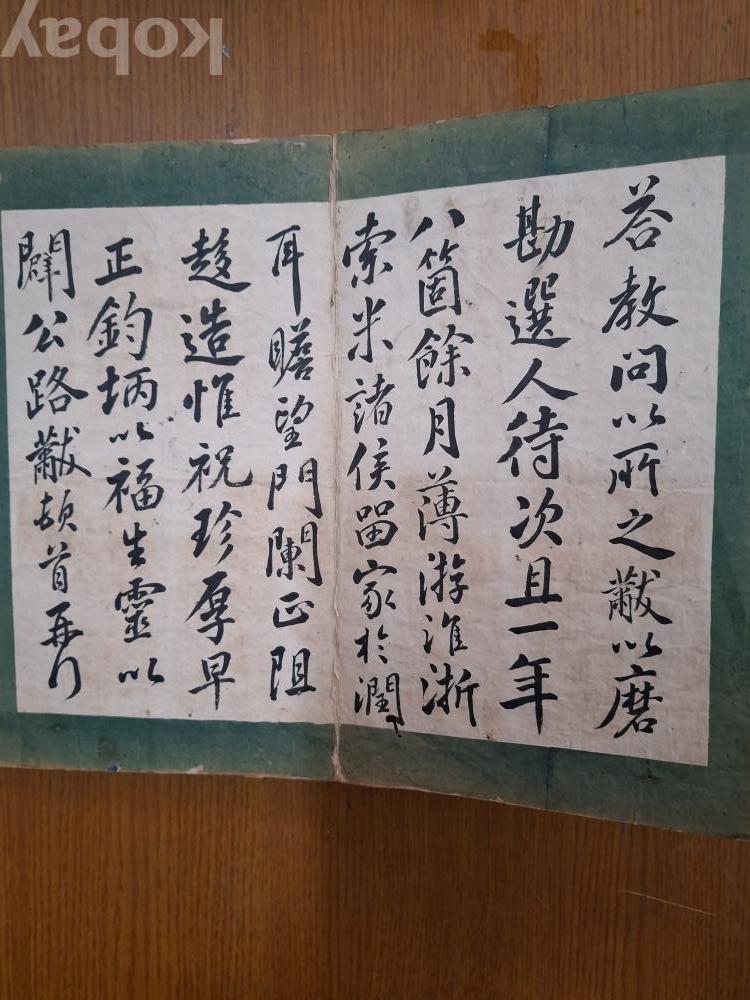 荅教問以所之黻以磨
勘選人待次且一年
八箇餘月薄游淮浙
索米諸侯留家於潤
耳瞻望門闌正阻
趍造惟祝珍厚早
正鈞柄以福生靈以
闢公路黻頓首再拜
kobay